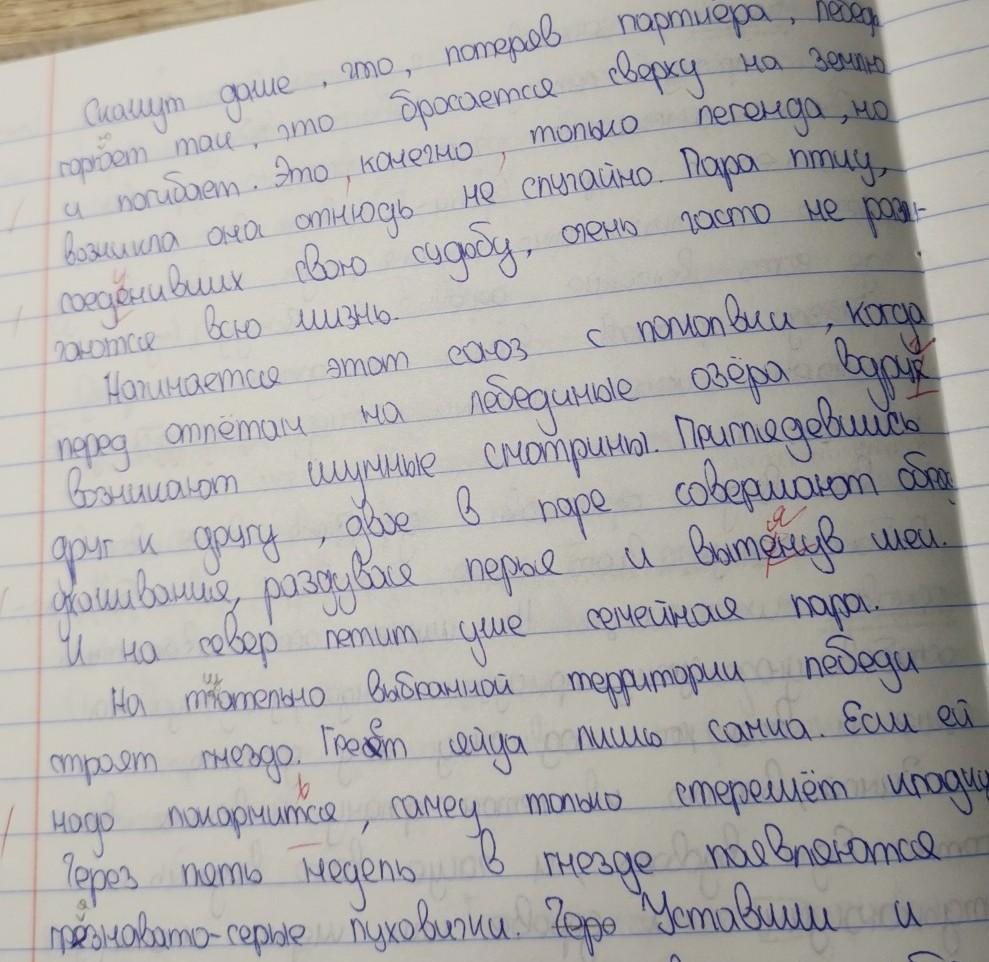 Скажут даже, что, потеряв партнёра, лебедь
горюет так, что бросается сверху на землю
и погибает. Это, конечно, только легенда, но
возникла она отнюдь не случайно. Пара птиц,
соединивших свою судьбу, очень часто не разлу-
чаются всю жизнь.
Начинается этот союз с помолвки, когда
перед отлётам на лебединые озёра вдруг
возникают шумные смотрины. Приглядевшись
друг к другу, двое в паре совершают
ухаживания, раздувая перья и вытянув шеи.
И на север летит уже семейная пара.
На тщательно выбранной территории лебеди
строят гнездо. Греет яйца лишь самка. Если ей
надо покормиться, самец только стережёт кладку
Через пять недель в гнезде появляются
грязновато-серые пуховички. Уставшии и